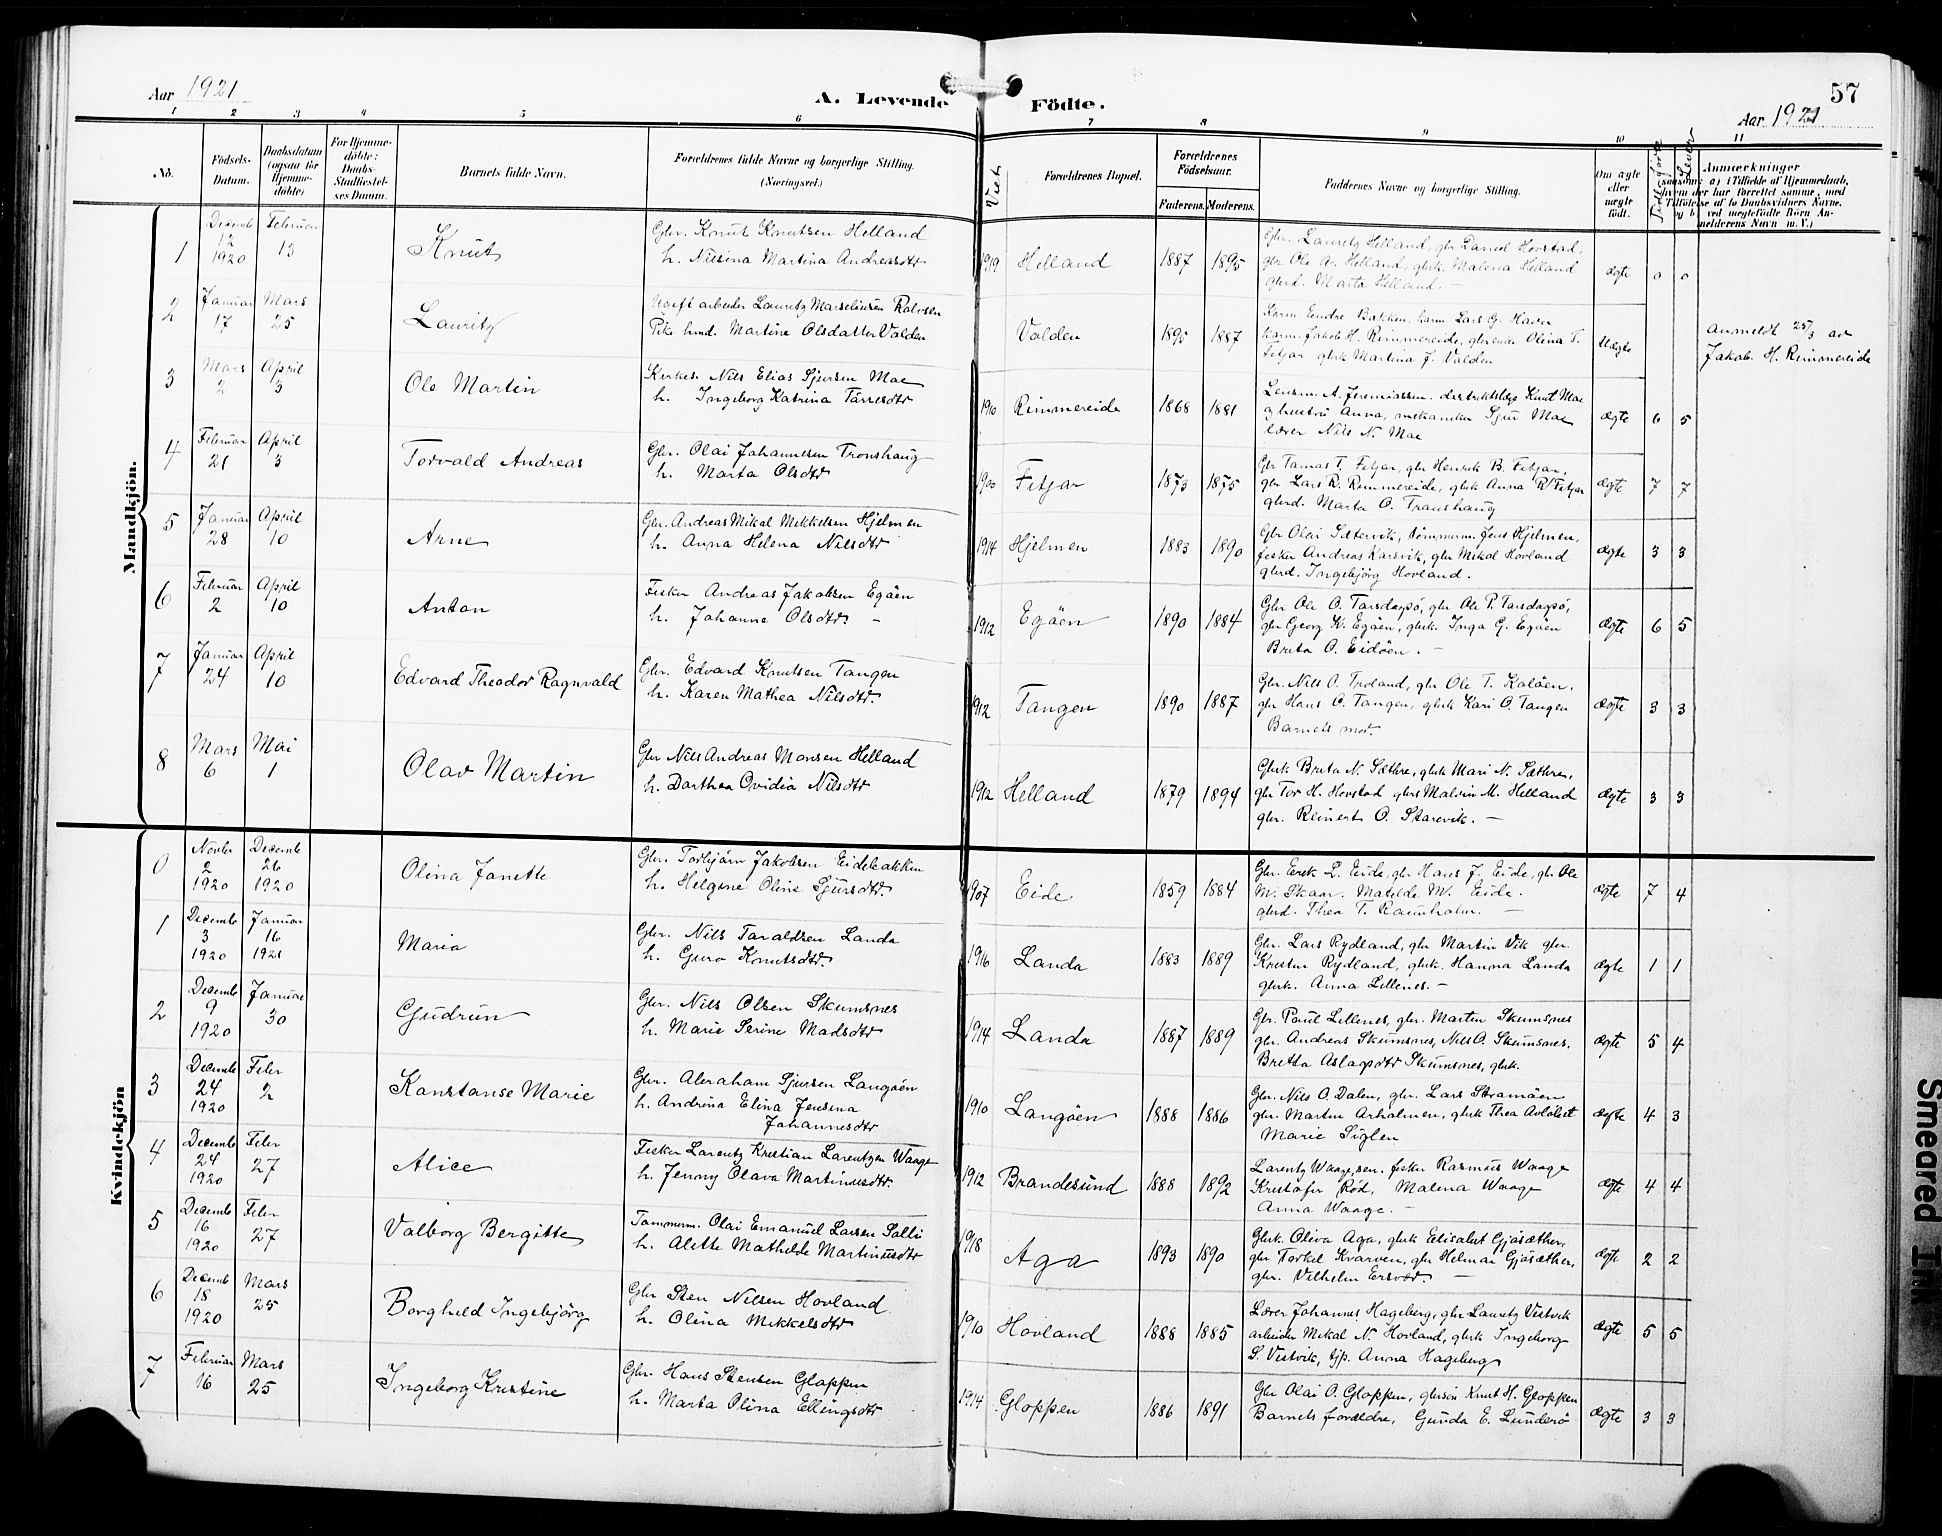 Aar 1921
A. Levende Födte.
57
Aar 1921
1 2 3 4 5 6 7 8 9 10 11
No.
Födsels-Datum.
Daabsdatum (ogsaa for Hjemme-döbte)
For Hjemme-döbte: Daabs-Stadfæstel-ses Datum.
Barnets fulde Navn.
Forældrenes fulde Navne og borgerlige Stilling. (Næringsvei.)
Viet
Forældrenes Bopæl.
Forældrenes Födselsaar.
Faderens. Moderens.
Faddernes Navne og borgerlige Stilling.
Om ægte eller uægte födt.
Tidl. fødte
Lever
Anmærkninger
(saasom: a) i Tilfælde af Hjemmedaab, hvem der har forrettet samme, med Tilföielse af to Daabsvidners Navne, og b) ved uægtefödte Börn An-melderens Navn m. V.)
Mandkjön.
1 Decemb 12 1920 Februar 13 Knut
Gbr. Knut Knutsen Helland
h. Nilsina Martina Andreasdtr
1919 Helland 1887 1895
Gbr. Lauritz Helland, gbr Daniel Hovstad,
gbr Ole A. Helland, gbrk. Malena Helland
gbrd. Marta Helland. -
ægte 0 0
2 Januar 17 Mars 25 Lauritz
Ugift arbeider Lauritz Marselius
Pike hmd. Martine Olsdatter Valden
Valden 1895 1887
Karm Endre Bakken, karm Lars G. Havn
karm. Jakob H. Rimmereide, gbrenke Olina T.
Fitjar gbrk Martina J. Valden
Uægte
Anmeldt 25/3 av
Jakob H. Rimmereide
3 Mars 2 April 3 Ole Martin
Kirkes. Nils Elias Sjursen Mae
h. Ingeborg Katrina Tørresdtr
1910 Rimmereide 1868 1881
Lensm. A. Jeremiassen, distriktslæge Knut Mae
og hustru Anna, mekaniker Sjur Mae
lærer Nils N. Mae
ægte 6 5
4 Februar 21 April 3 Torvald Andreas
Gbr. Olai Johannesen Tronshaug
h. Marta Olsdtr
1900 Fitjar 1873 1875
Gbr Tomas T. Fitjar, gbr Henrik B. Fitjar,
gbr Lars R. Rimmereide, gbrk Anna R. Fitjar
gbrd. Marta O. Transhaug
ægte 7 7
5 Januar 28 April 10 Arne
Gbr. Andreas Mikal Mikkelsen Hjelmen
h. Anna Helena Nilsdtr
1914 Hjelmen 1883 1890
Gbr Olai Sætervik, tømmerm. Jens Hjelmen,
fisker Andreas Karsvik, gbr Mikal Hovland
gbrd. Ingebjørg Hovland.
ægte 3 3
6 Februar 2 April 10 Anton
Fisker Andreas Jakobsen Egöen
h. Johanne Olsdtr -
1912 Egöen 1890 1884
Gbr Ole O. Tarsdagsö, gbr Ole P. Tarsdagsö,
gbr Georg K. Egöen, gbrk. Inga G. Egöen
Brita O. Eidöen. -
ægte 6 5
7 Januar 24 April 10 Edvard Theodor Ragnvald
Gbr. Edvard Knutsen Tangen
h. Karen Mathea Nilsdtr.
1912 Tangen 1890 1887
Gbr. Nils O. Troland, gbr Ole T. Kalöen,
gbr Hans O. Tangen, gbrk Kari O. Tangen
Barnets mor.
ægte 3 3
8 Mars 6 Mai 1 Olav Martin
Gbr Nils Andreas Monsen Helland
h. Dorthea Ovidia Nilsdtr
1912 Helland 1879 1894
Gbrk Brita N. Sæthre, gbrk Mari N. Sæthre,
gbr Tor H. Hovstad gbrs Malvin M. Helland
gbr. Reinert O. Starevik. -
ægte 3 3
Kvindekjön
0 Novbr 2 1920 Decemb 26 1920 Olina Janette
Gbr. Torbjörn Jakobsen Eidebakken
h. Helgine Oline Sjursdtr.
1907 Eide 1859 1884
Gbr. Erik L. Eide, gbr Hans J. Eide, gbr Ole
M. Skaar. Matilde M. Eide.
gbrd. Thea T. Raunholm. -
ægte 7 4
1 Decemb 3 1920 Januar 16 1921 Maria
Gbr. Nils Taraldsen Landa
h. Guro Knutsdtr.
1916 Landa 1883 1889
Gbr. Lars Rydland, gbr Martin Vik gbr.
Kristen Rydland, gbrk. Hanna Landa
gbrk. Anna Lillenes. -
ægte 1 1
2 Decemb 9 1920 Januar 30 Gudrun
Gbr. Nils Olsen Skumsnes
h. Marie Serine Madsdtr
1914 Landa 1887 1889
Gbr. Paul Lillenes, gbr. Martin Skumsnes
gbr. Andreas Skumsnes, Nils O. Skumsnes,
Britta Aslagsdtr Skumsnes, gbrk.
ægte 5 4
3 Decemb 24 1920 Febr 2 Konstanse Marie
Gbr. Abraham Sjursen Langöen
h. Andrina Elina Jensina
Johannesdtr
1910 Langöen 1888 1886
Gbr. Nils O. Dalen, gbr. Lars Stramöen
gbr. Martin Arholmen, gbrk Thea
Marie Siglen
ægte 4 3
4 Decemb 24 1920 Febr 27 Alice
Fisker Larentz Kristian Larentzen Waage
h. Jenny Olava Martinusdtr.
1912 Brandesund 1888 1892
Larentz Waage sen. fisker Rasmus Waage
Kristofer Röd, Malena Waage
Anna Waage. -
ægte 4 4
5 Decemb 16 1920 Febr 27 Valborg Bergitte
Tømmerm. Olai Emanuel Larsen Solli
h. Alette Mathilde Martinusdtr
1918 Aga 1893 1890
Gbrk. Oliva Aga, gbrk Elisabet Gjösæther,
gbr Torkel Kvarven, gbr Helmar Gjösæther,
gbr. Vilhelm Ersvær. -
ægte 2 2
6 Decemb 18 1920 Mars 25 Borghild Ingebjörg
Gbr Sten Nilsen Hovland
h. Olina Mikkelsdtr
1910 Hovland 1888 1885
Lærer Johannes Hageberg, gbr Lauritz Vestvik
arbeider Mikal N. Hovland, gbrk Ingeborg
S. Vestvik, tjp. Anna Hageberg
ægte 5 5
7 Februar 16 Mars 25 Ingeborg Kristine
Gbr. Hans Stensen Gloppen
h. Marta Olina Ellingsdtr
1914 Gloppen 1886 1891
Gbr Olai O. Gloppen, gbrsön Knut H. Gloppen
Barnets forældre, Gunda E. Lunderö
ægte 3 3
Smeared INK